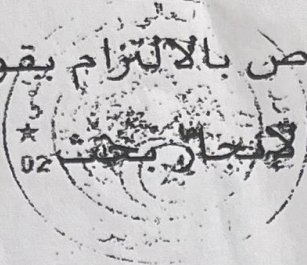 ص بالالتزام بقو
لانجاز بحث
02